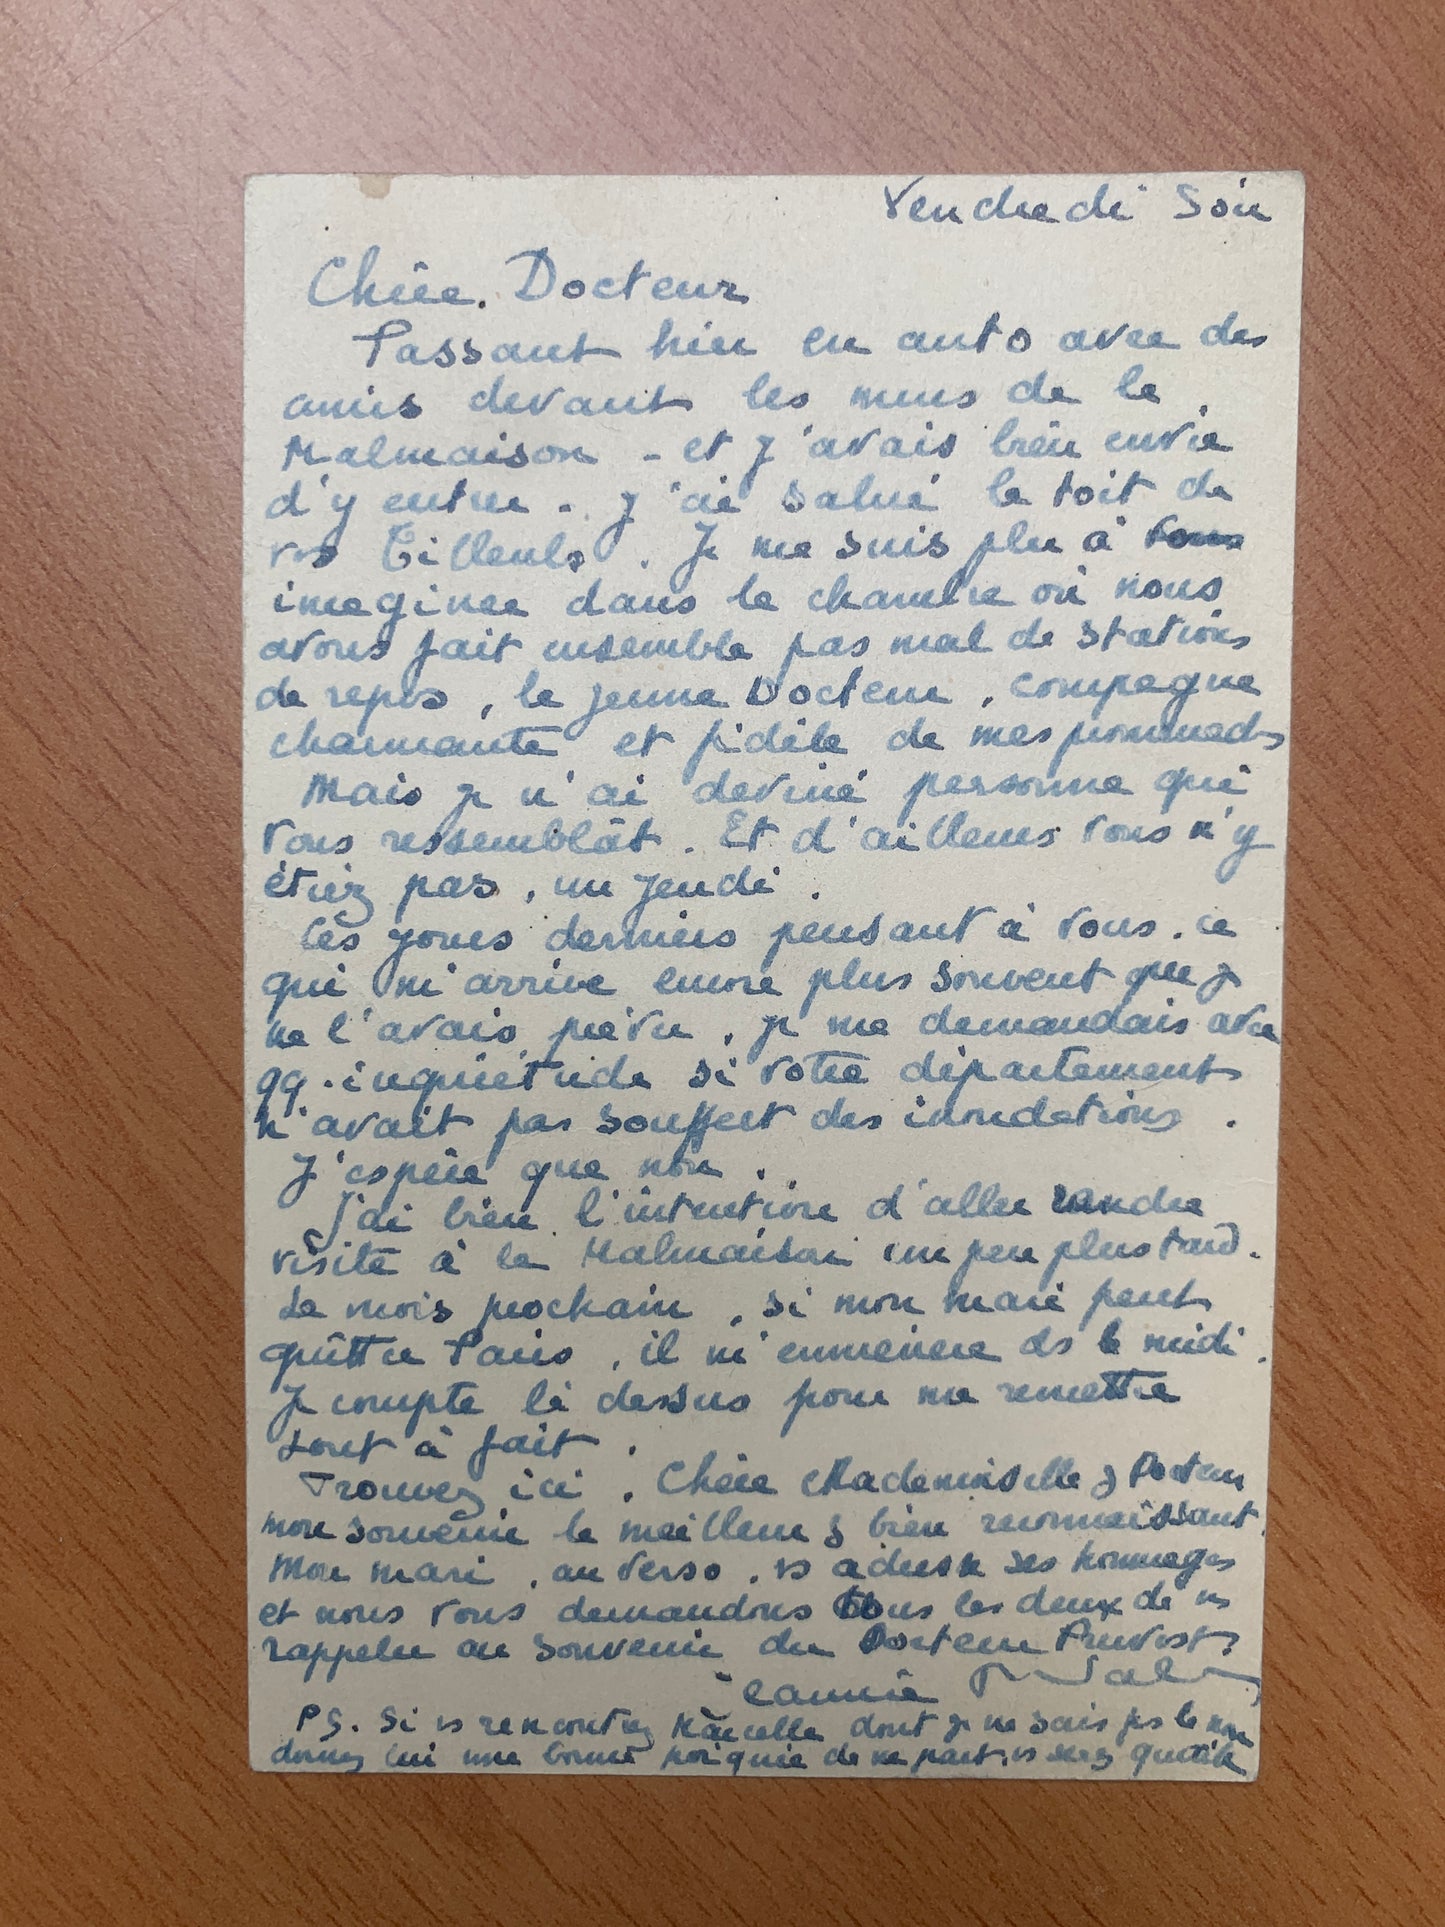 Vendredi Soir
Chère Docteur
Passant hier en auto avec des
amis devant les murs de la
Malmaison - et j'avais bien envie
d'y entrer - j'ai salué le toit de
vos Tilleuls. Je me suis plu à vous
imaginer dans la chambre où nous
avons fait ensemble pas mal de stations
de repos, le jeune Docteur, compagne
charmante et fidèle de mes promenades
Mais je n'ai deviné personne qui
vous ressemblât. Et d'ailleurs vous n'y
étiez pas, un jeudi.
Ces jours derniers pensant à vous, ce
qui m'arrive encore plus souvent que je
ne l'avais prévu, je me demandais avec
qq. inquiétude si votre département
n'avait pas souffert des inondations.
J'espère que non.
J'ai bien l'intention d'aller rendre
visite à la Malmaison un peu plus tard.
Le mois prochain, si mon mari peut
quitter Paris, il m'emmènera ds le midi.
Je compte là dessus pour me remettre
tout à fait.
Trouvez ici, Chère Mademoiselle & Docteur
mon souvenir le meilleur & bien reconnaissant.
Mon mari, au verso, vs adresse ses hommages
et nous vous demandons tous les deux de ns
rappeler au souvenir du Docteur Pruvost
Jeannie
PS. Si vs rencontrez Marcelle dont je ne sais pas le nom
donnez lui une bonne poignée de ma part, vs serez gentille